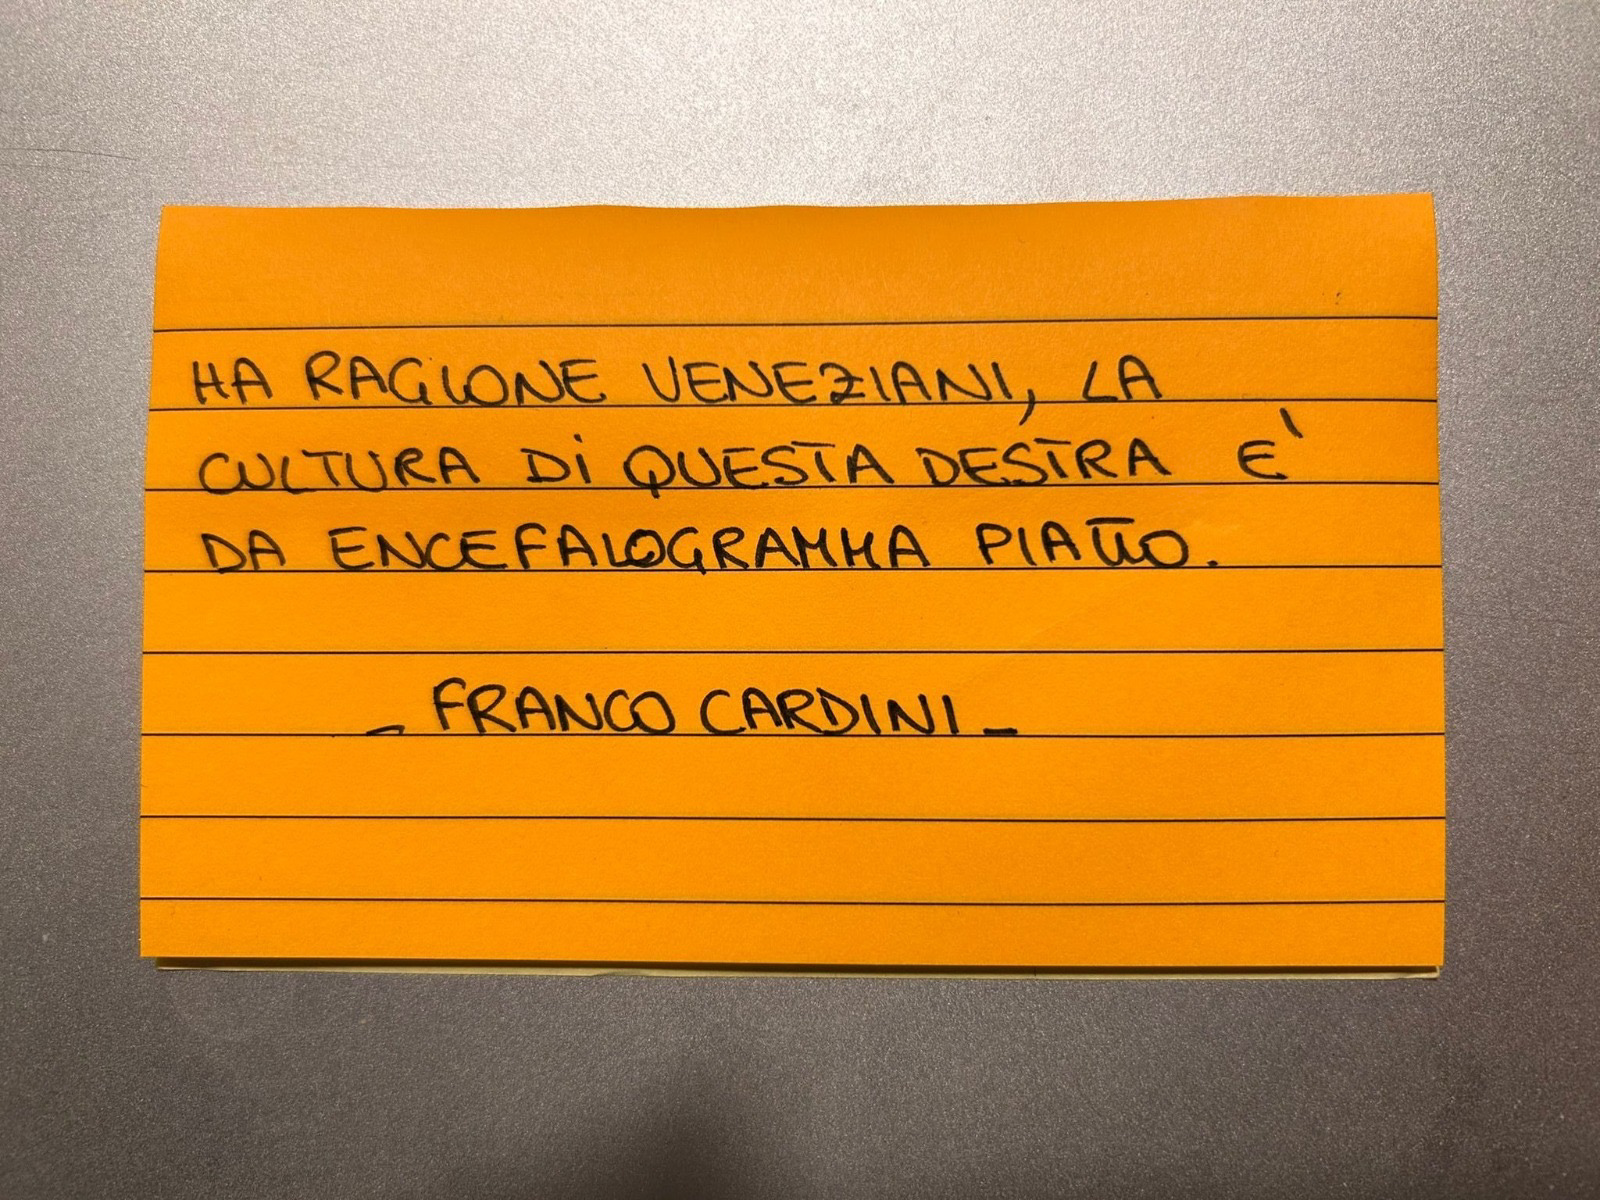 HA RAGIONE VENEZIANI, LA
CULTURA Di QUESTA DESTRA E'
DA ENCEFALOGRAMMA PIATTO.
- FRANCO CARDINI -